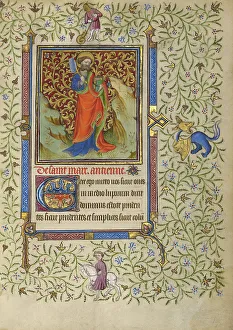 De saint marc. antienne
Ecce ego mitto vos sicut oues
in medio luporum dicit
dominus estote pruden
tes sicut et simplices sicut colu